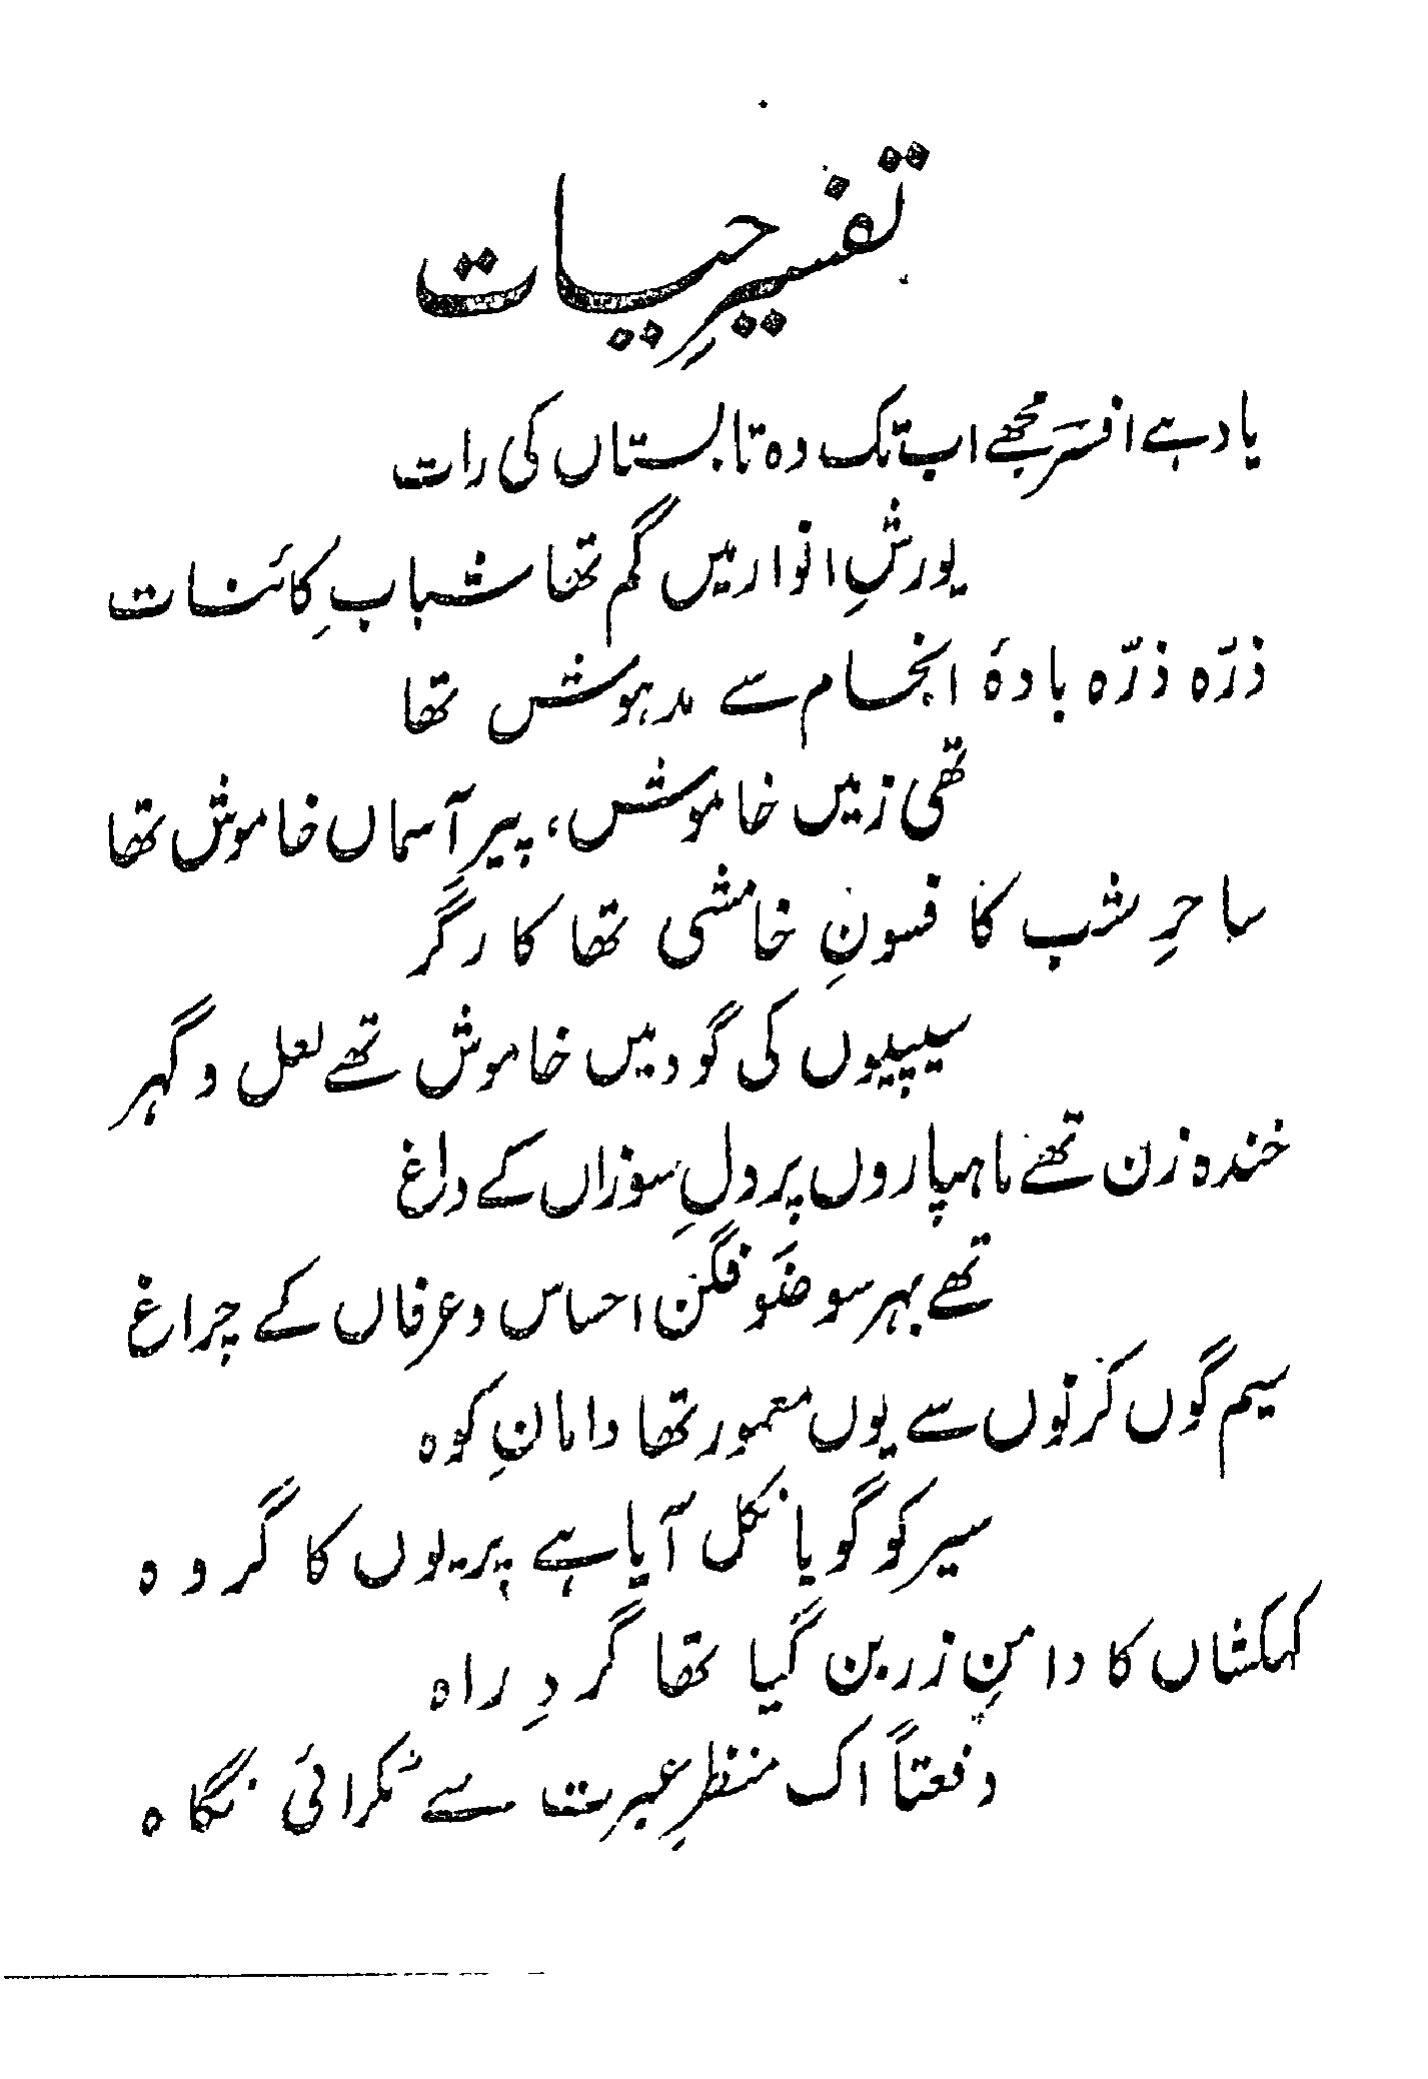 تفسیرِ حیات
یاد ہے افسرؔ مجھے اب تک وہ تابستاں کی رات
یورشِ انوار میں گم تھا شبابِ کائنات
ذرّہ ذرّہ بادۂ انجام سے مدہوش تھا
تھی زمیں خاموش، پیرِ آسماں خاموش تھا
ساحرِ شب کا فسونِ خامشی تھا کارگر
سیپیوں کی گود میں خاموش تھے لعل و گہر
خندہ زن تھے ماہپاروں پر دلِ سوزاں کے داغ
تھے بہر سو ضَو فگن احساس و عرفاں کے چراغ
سیم گوں کرنوں سے یوں معمور تھا دامانِ کوہ
سیر کو گویا نکل آیا ہے پریوں کا گروہ
کہکشاں کا دامنِ زر بن گیا تھا گردِ راہ
دفعتاً اک منظرِ عبرت سے ٹکرائی نگاہ